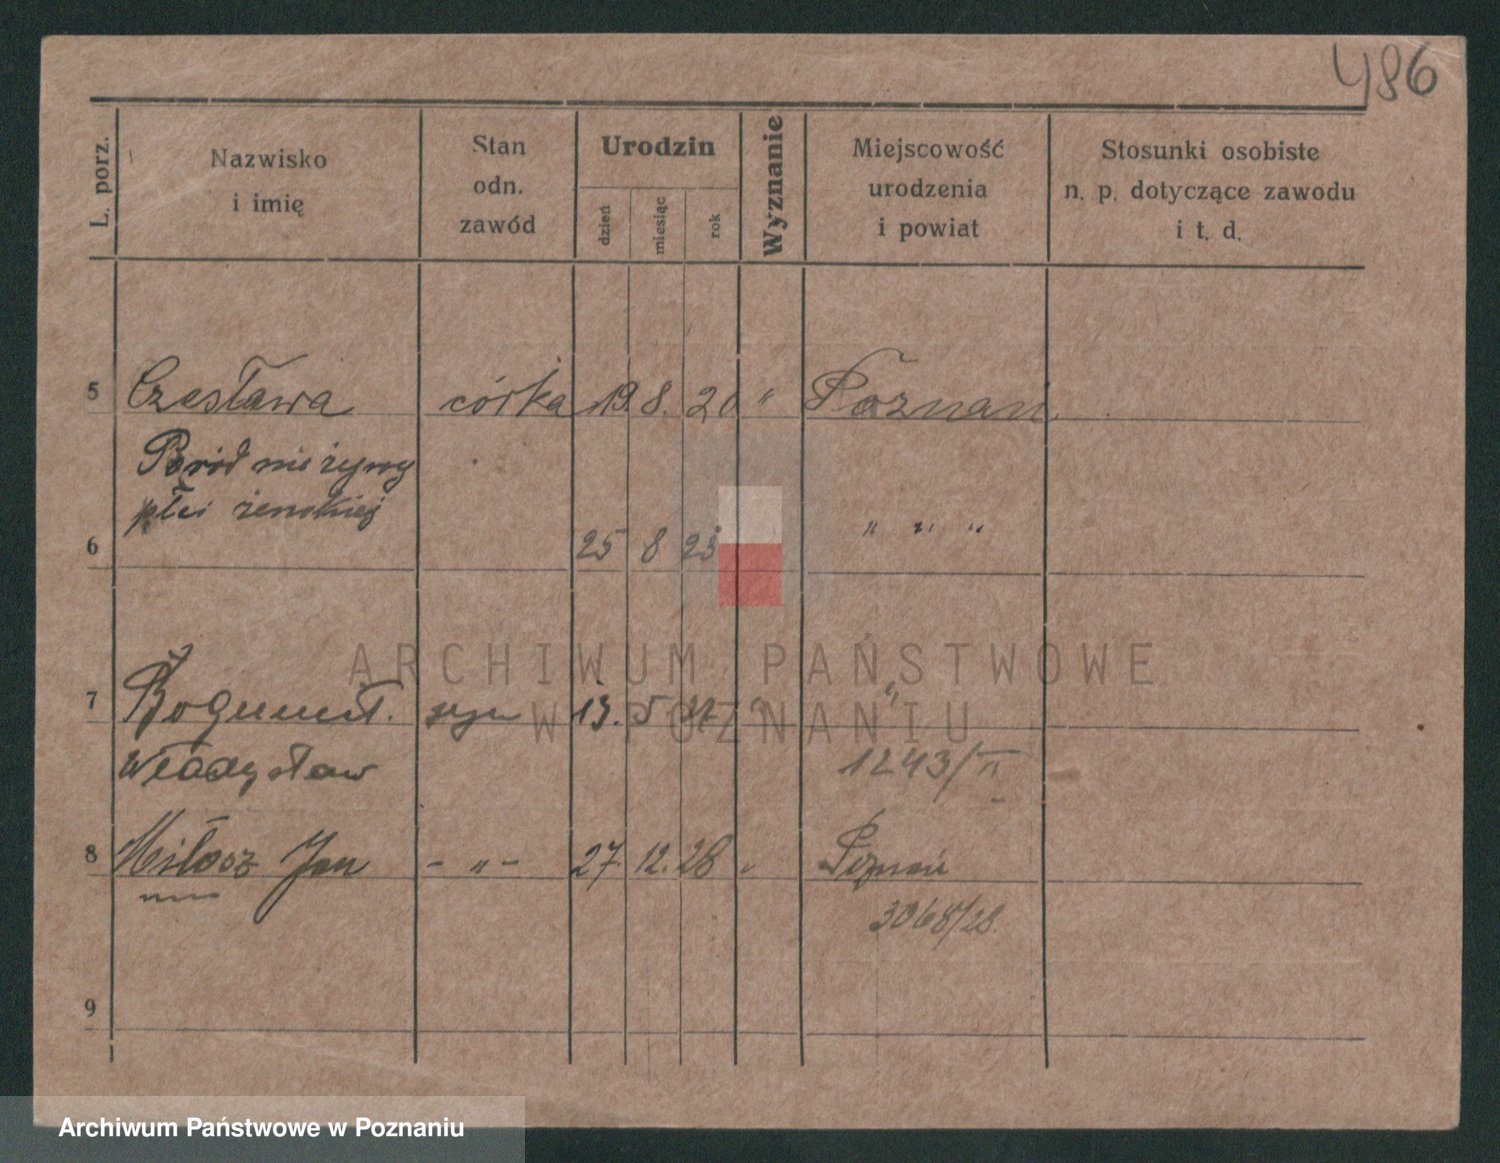 486
L. porz.
Nazwisko
i imię
Stan
odn.
zawód
Urodzin
dzień
miesiąc
rok
Wyznanie
Miejscowość
urodzenia
i powiat
Stosunki osobiste
n. p. dotyczące zawodu
i t. d.
5 Czesława córka 19. 8. 20 " Poznań
Poród nieżywy
płci żenskiej
6 25 8 23 " " "
7 Bogumił. syn 13. 5 "
Władysław 1243/II
8 Miłosz Jan - " - 27. 12. 28 " Poznań
3068/28.
9
ARCHIWUM PAŃSTWOWE
W POZNANIU
Archiwum Państwowe w Poznaniu